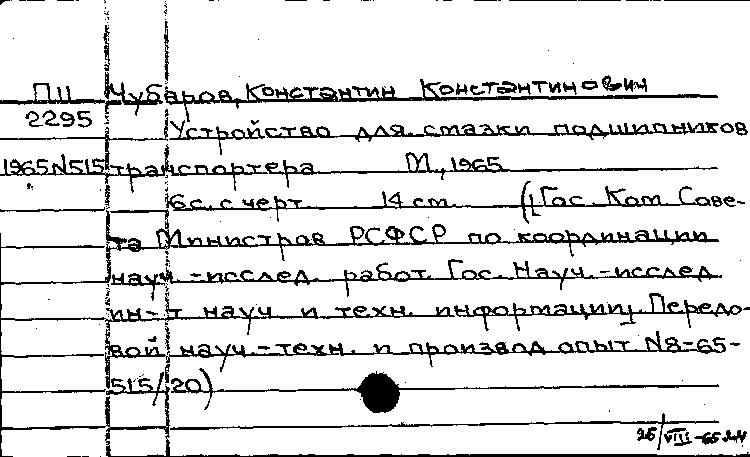 П11 Чубаров, Константин Константинович
2295 Устройство для смазки подшипников
1965N515 транспортера М., 1965
6с. с черт. 14 cm ([Гос. Ком. Сове-
та Министров РСФСР по координации
науч.-исслед. работ. Гос. Науч.-исслед.
ин-т науч. и техн. информации]. Передо-
вой науч.-техн. и производ. опыт N8-65-
515/20)
25/VIII-65